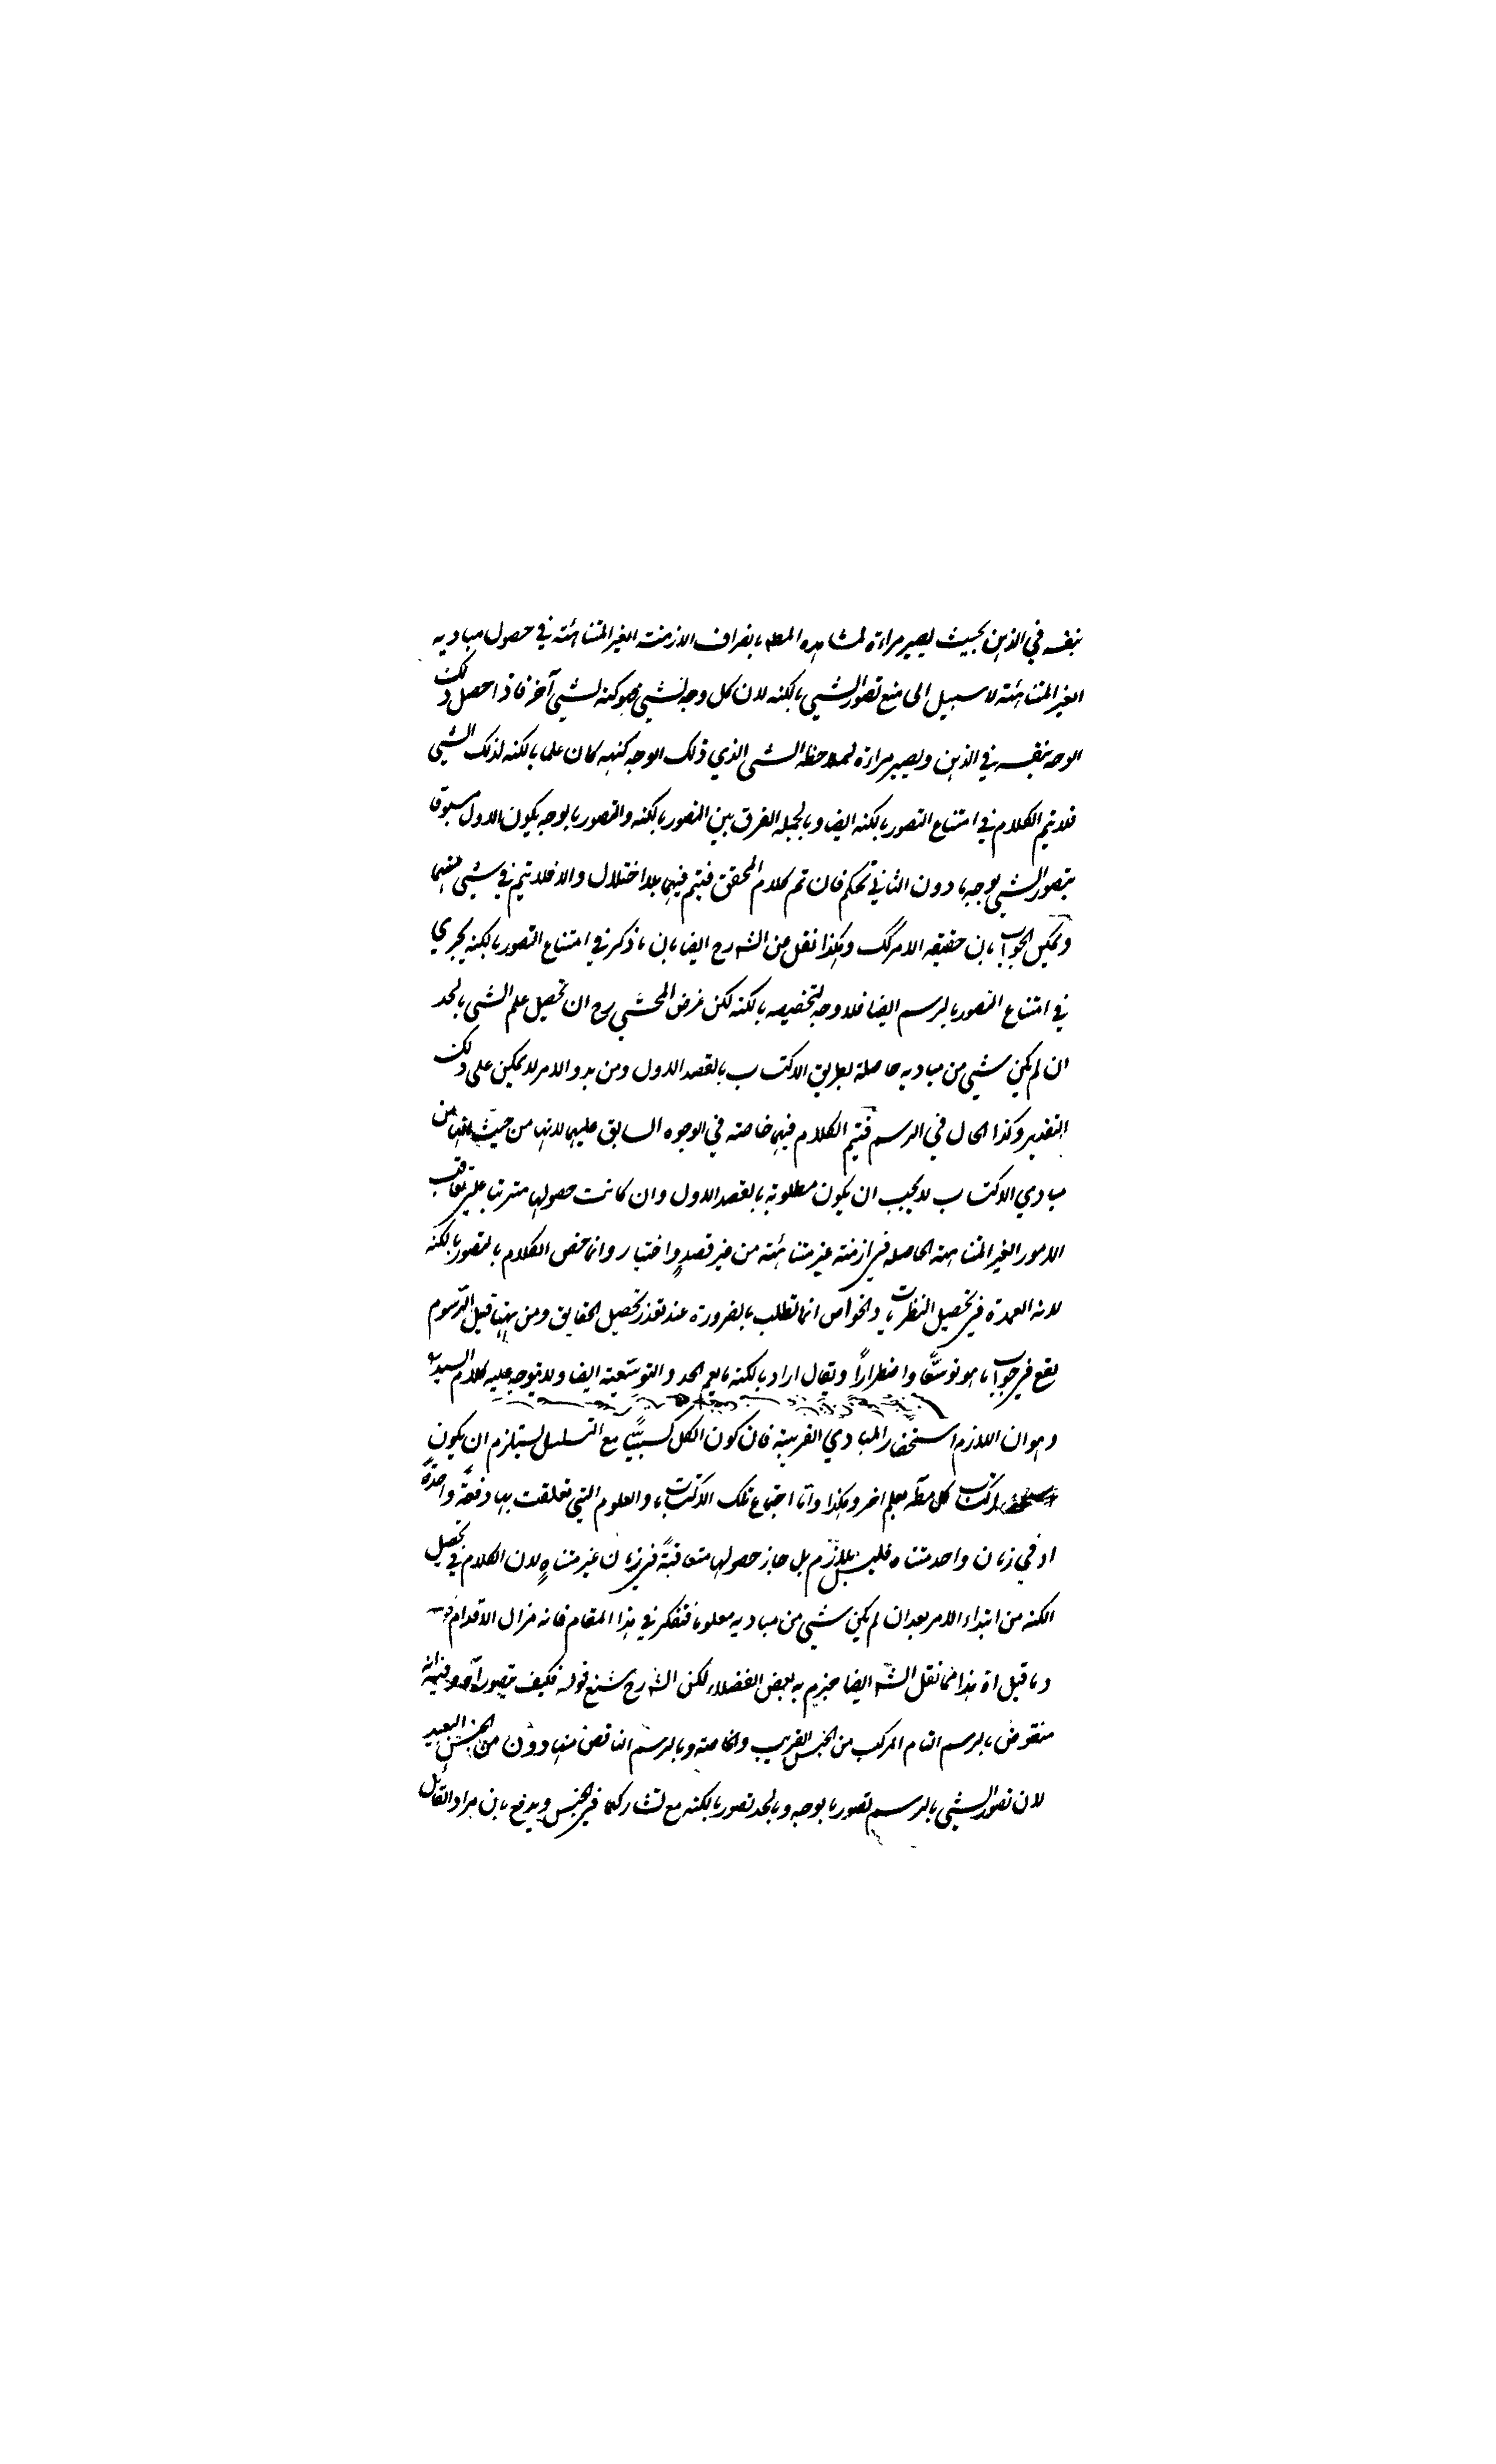 بنفسه في الذهن بحيث يصير مراة لمشاهدة المط بانصراف الازمنة الغير المتناهية في حصول مباديه
الغير المتناهية لا سبيل الى منع تصور الشيئ بالكنه لان كل وجه لشيئ فهو كنه لشيئ آخر فاذا حصل ذلك
الوجه بنفسه في الذهن ويصير مراة لملاحظة الشيئ الذي ذلك الوجه كنهه كان علما بالكنه لذلك الشيئ
فلا يتم الكلام في امتناع التصور بالكنه ايضا وبالجملة الفرق بين التصور بالكنه والتصور بالوجه بكون الاول مسبوقا
بتصور الشيئ بوجه ما دون الثاني تحكم فان تم كلام المحقق فيتم فيهما بلا اختلال والا فلا يتم في شيئ منهما
ويمكن الجواب بان حقيقة الامر كك وهكذا نقل من الشارح ايضا بان ما ذكر في امتناع التصور بالكنه يجري
في امتناع التصور بالرسم ايضا فلا وجه لتخصيصه بالكنه لكن غرض المحشي رح ان تحصيل علم الشيئ بالحد
ان لم يكن شيئ من مباديه حاصلة بطريق الاكتساب بالقصد الاول ومن بدو الامر لا يمكن على ذلك
التقدير وكذا الحال في الرسم فيتم الكلام فيهما خاصة في الوجوه السابق عليهما لانها من حيث انها من
مبادي الاكتساب لا يجب ان يكون مطلوبة بالقصد الاول وان كانت حصولها مترتبا على تعاقب
الامور الغير المتناهية الحاصلة في ازمنة غير متناهية من غير قصد واختيار وانما خص الكلام بالتصور بالكنه
لانه العمدة في تحصيل النظريات والخواص انما تطلب بالضرورة عند تعذر تحصيل الحقايق ومن ههنا قيل الرسوم
يقع في جواب ما هو توسعًا واضطرارًا ويقال اراد بالكنه ما يعم الحد والتوسعية ايضا ولا يتوجه عليه كلام السيد
وهو ان اللازم استحضار المبادي القريبة فان كون الكل كسبيًّا مع التسلسل يستلزم ان يكون
اكتساب كل مط بعلم اخر وهكذا واما اجتماع تلك الاكتسابات والعلوم التي تعلقت بها دفعةً واحدةً
او في زمان واحد متناه فليس بلازم بل جاز حصولها متعاقبةً في زمان غير متناهٍ لان الكلام في تحصيل
الكنه من ابتداء الامر بعد ان لم يكن شيئ من مباديه معلوما فتفكر في هذا المقام فانه مزال الاقدام
وما قيل اه هذا مما نقل الشه ايضا جزم به بعض الفضلاء لكن الشه رح شنع قوله فكيف يتصور آه وفيه انه
منقوض بالرسم التام المركب من الجنس القريب والخاصة وبالرسم الناقص منها دون من الجنس البعيد
لان تصور الشيئ بالرسم تصور بالوجه وبالحد تصور بالكنه مع تشاركهما في الجنس ويدفع بان مراد القائل